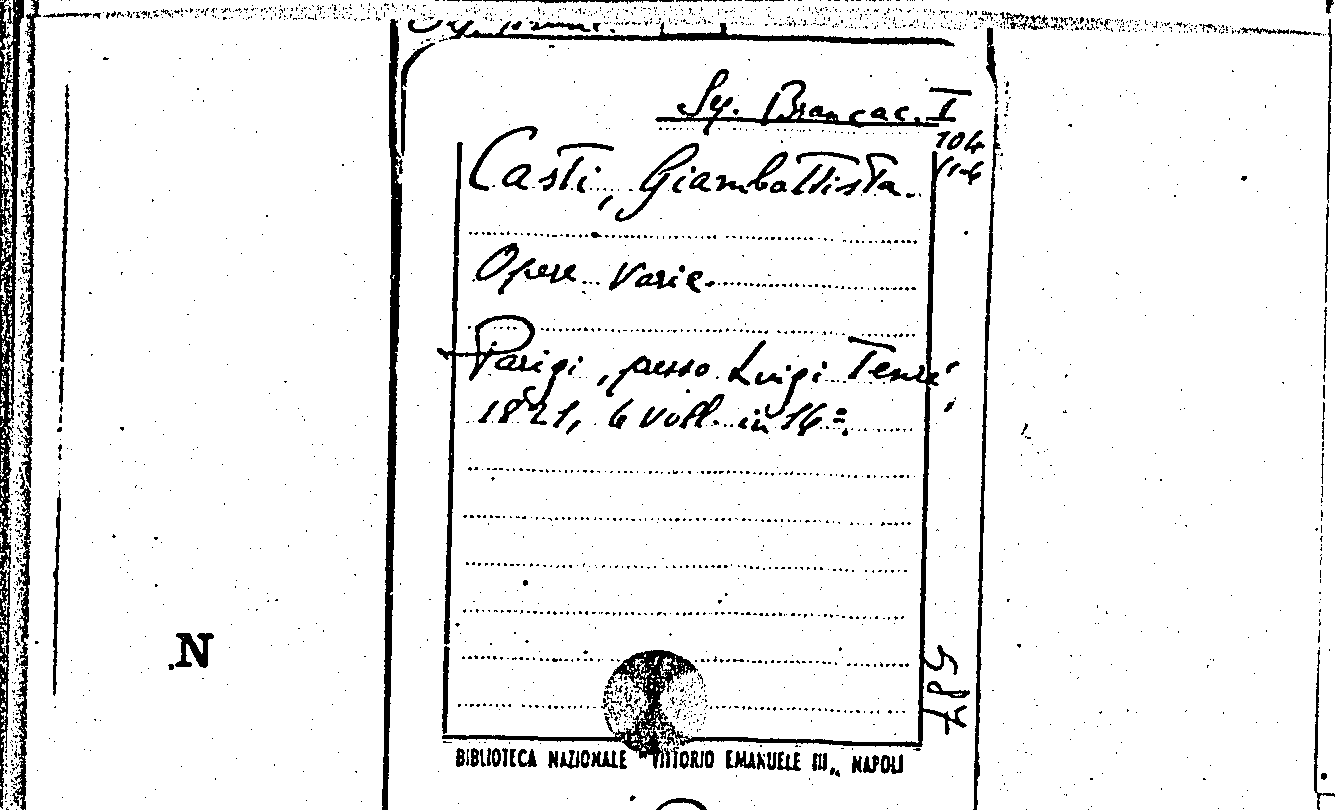 Sy. Brancac. I
104
Casti, Giambattista.
Opere varie.
Parigi, presso Luigi Tenré,
1821, 6 voll. in 16=.
N
587
BIBLIOTECA NAZIONALE "VITTORIO EMANUELE III„ NAPOLI